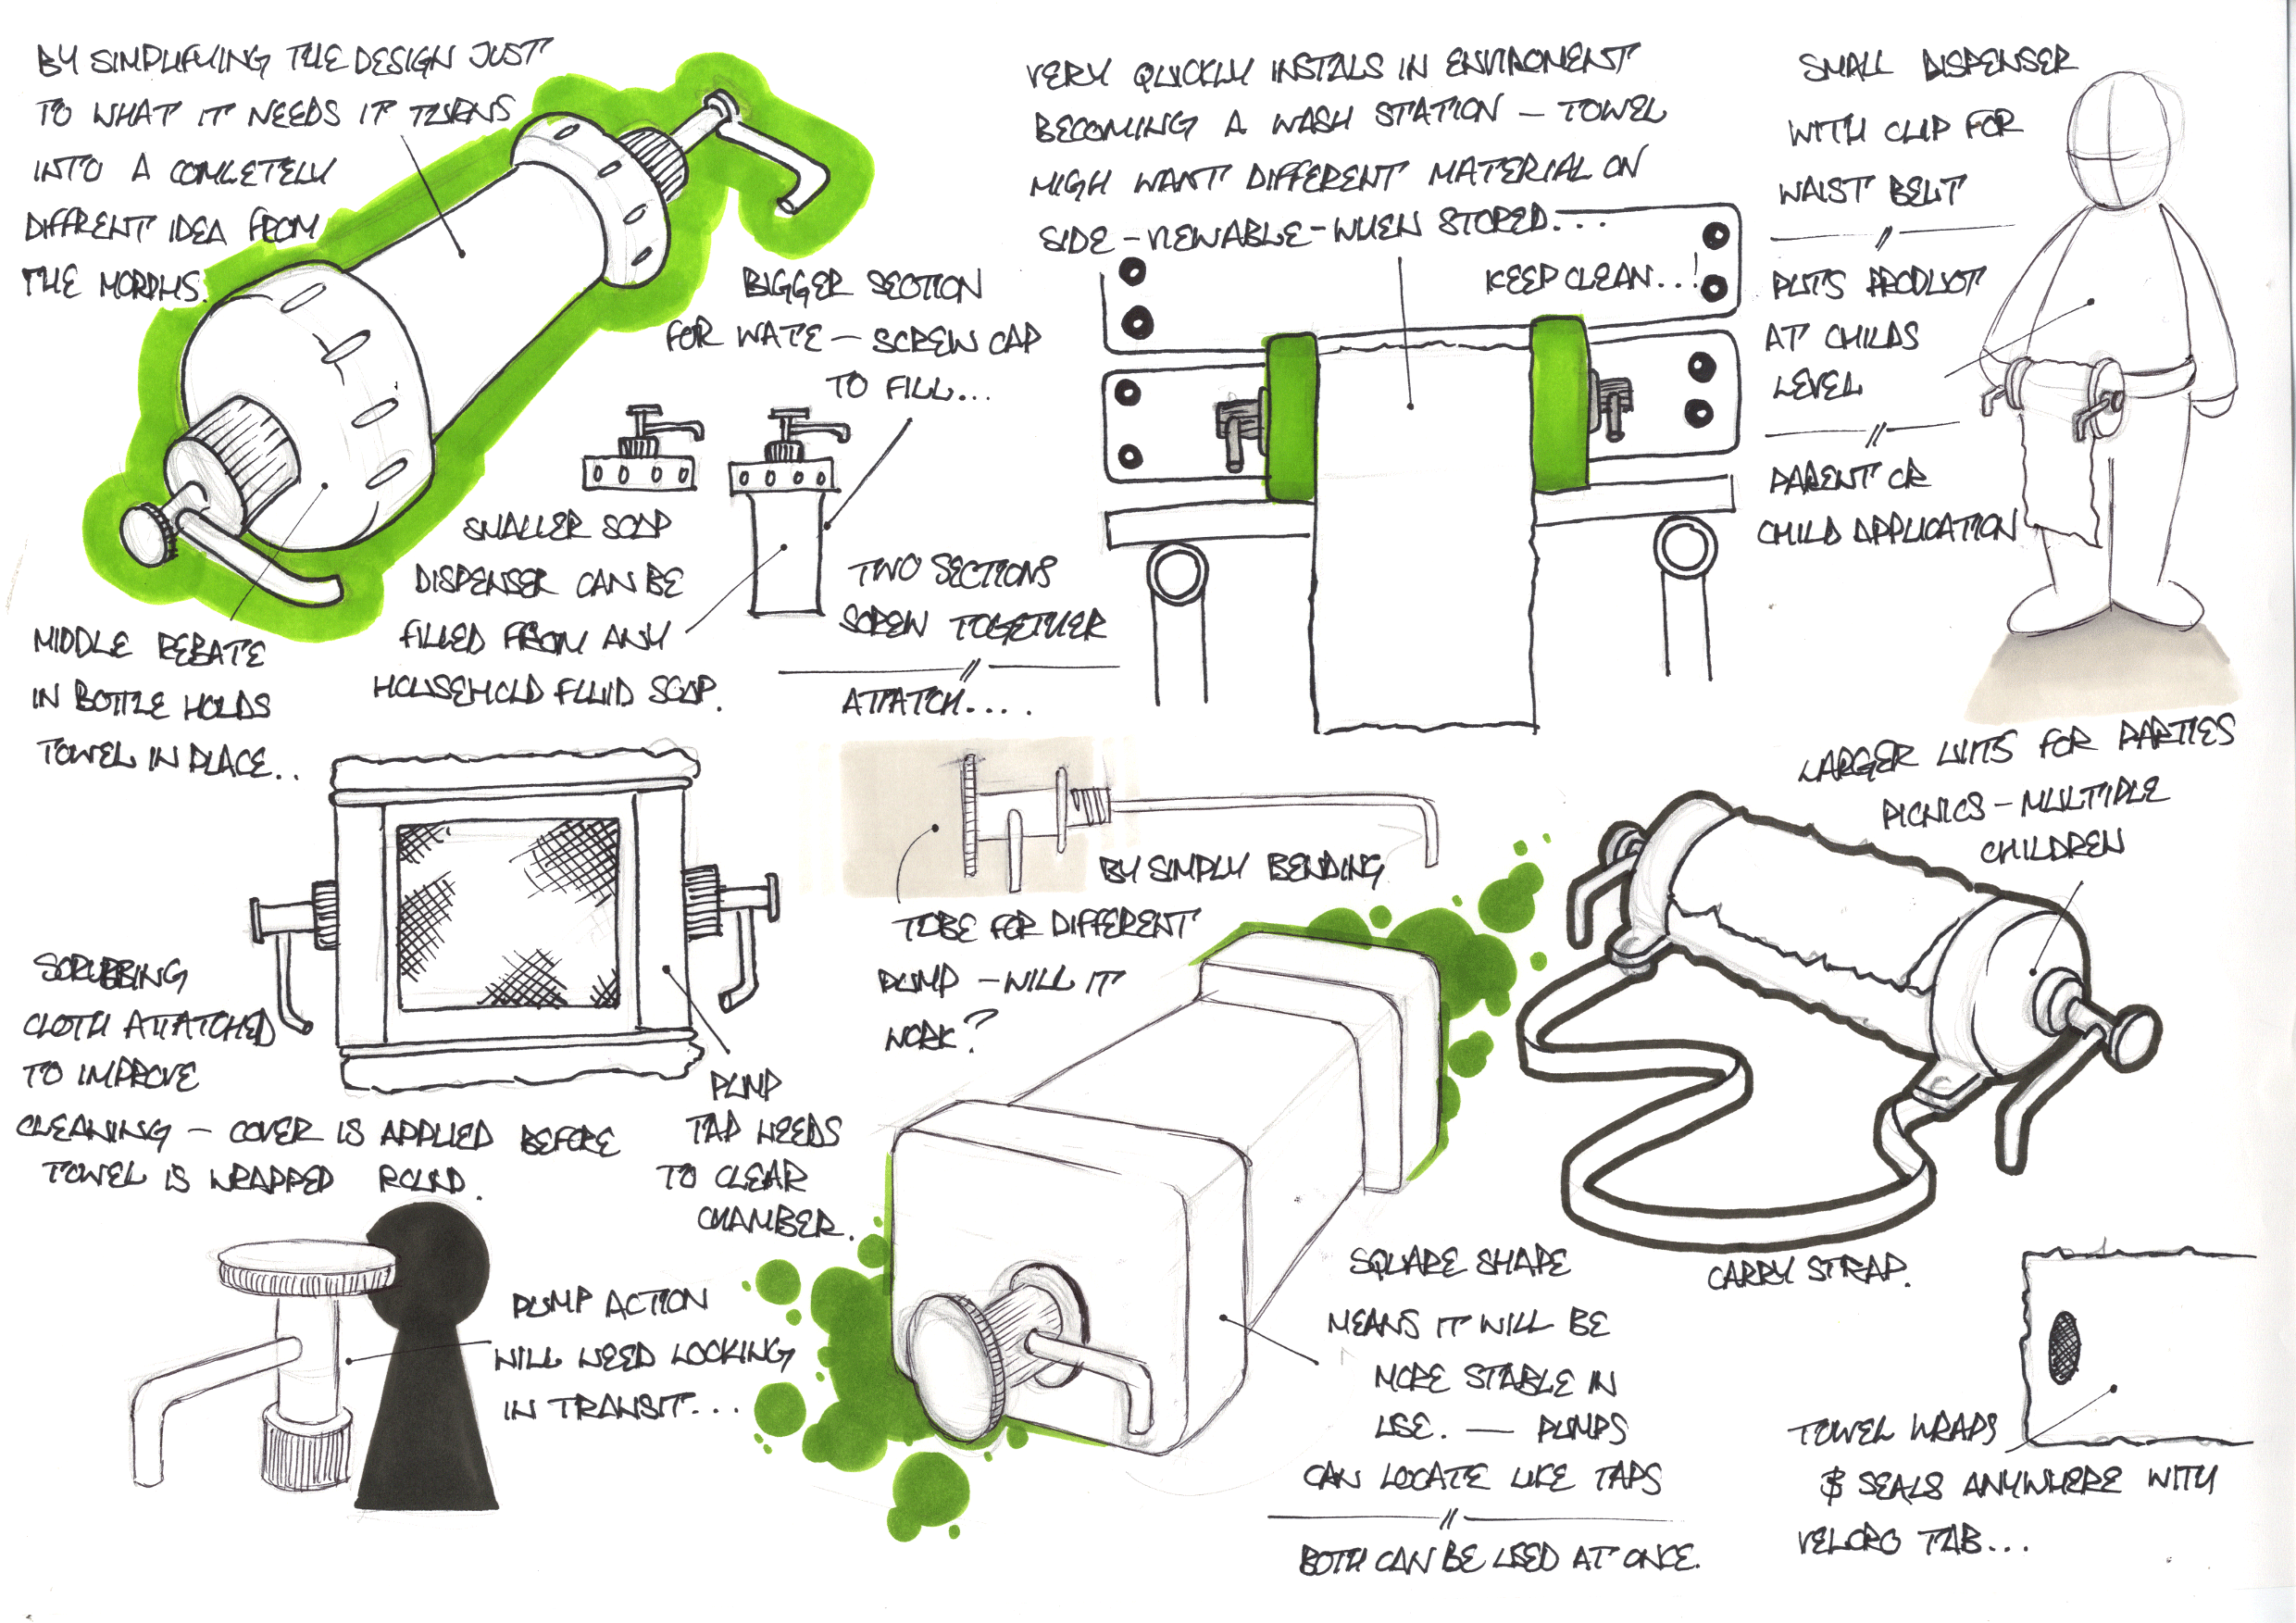 BY SIMPLIFYING THE DESIGN JUST
TO WHAT IT NEEDS IT TURNS
INTO A COMLETELY
DIFFRENT IDEA FROM
THE MORPHS.
BIGGER SECTION
FOR WATE – SCREW CAP
TO FILL...
SMALLER SOAP
DISPENSER CAN BE
FILLED FROM ANY
HOUSEHOLD FLUID SOAP.
TWO SECTIONS
SCREW TOGETHER
ATTATCH....
MIDDLE REBATE
IN BOTTLE HOLDS
TOWEL IN PLACE..
VERY QUICKLY INSTALS IN ENVIRONENT
BECOMING A WASH STATION – TOWEL
MIGH WANT DIFFERENT MATERIAL ON
SIDE – VIEWABLE – WHEN STORED...
KEEP CLEAN...!
SMALL DISPENSER
WITH CLIP FOR
WAIST BELT
PUTS PRODUCT
AT CHILDS
LEVEL
PARENT OR
CHILD APPLICATION
SCRUBBING
CLOTH ATTATCHED
TO IMPROVE
CLEANING – COVER IS APPLIED BEFORE
TOWEL IS WRAPPED ROUND.
PUMP
TAP NEEDS
TO CLEAR
CHAMBER.
BY SIMPLY BENDING
TUBE FOR DIFFERENT
PUMP – WILL IT
WORK?
LARGER UNITS FOR PARTIES
PICNICS – MULTIPLE
CHILDREN
CARRY STRAP.
PUMP ACTION
WILL NEED LOCKING
IN TRANSIT...
SQUARE SHAPE
MEANS IT WILL BE
MORE STABLE IN
USE. — PUMPS
CAN LOCATE LIKE TAPS
BOTH CAN BE USED AT ONCE.
TOWEL WRAPS
& SEALS ANYWHERE WITH
VELCRO TAB...